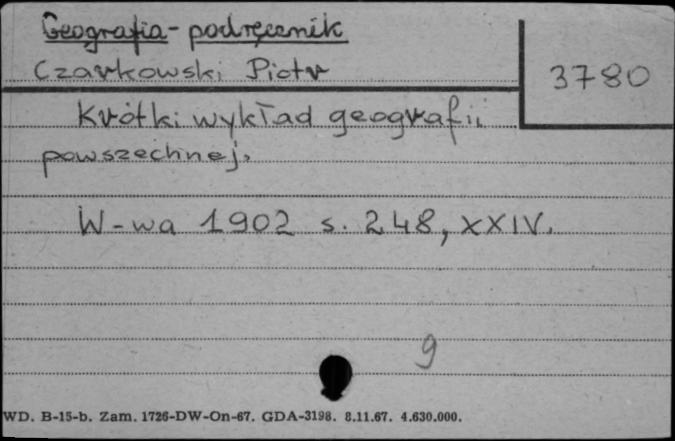 Geografia - podręcznik
Czarkowski Piotr
3780
Krótki wykład geografii
powszechnej.
W-wa 1902 s. 248, XXIV.
9
WD. B-15-b. Zam. 1726-DW-On-67. GDA-3198. 8.11.67. 4.630.000.